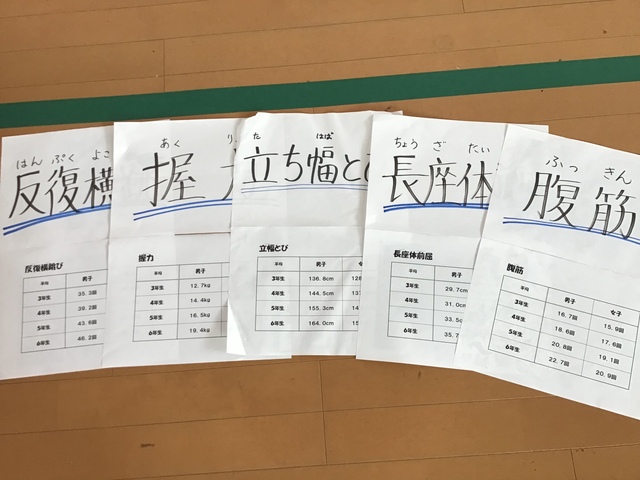 はん ぷく よこ
反復横
反復横跳び
平均 男子
3年生 35.3回
4年生 39.2回
5年生 43.6回
6年生 46.2回
あく り
握
握力
平均 男子
3年生 12.7kg
4年生 14.4kg
5年生 16.5kg
6年生 19.4kg
た はば
立ち幅と
立幅とび
平均 男子
3年生 136.8cm
4年生 144.5cm
5年生 155.3cm
6年生 164.0cm
ちょう ざ たい
長座体
長座体前屈
平均 男子
3年生 29.7cm
4年生 31.0c
5年生 33.5c
6年生 35.7
ふっ きん
腹筋
腹筋
平均 男子 女子
3年生 16.7回 15.9回
4年生 18.6回 17.6回
5年生 20.8回 19.1回
6年生 22.7回 20.9回